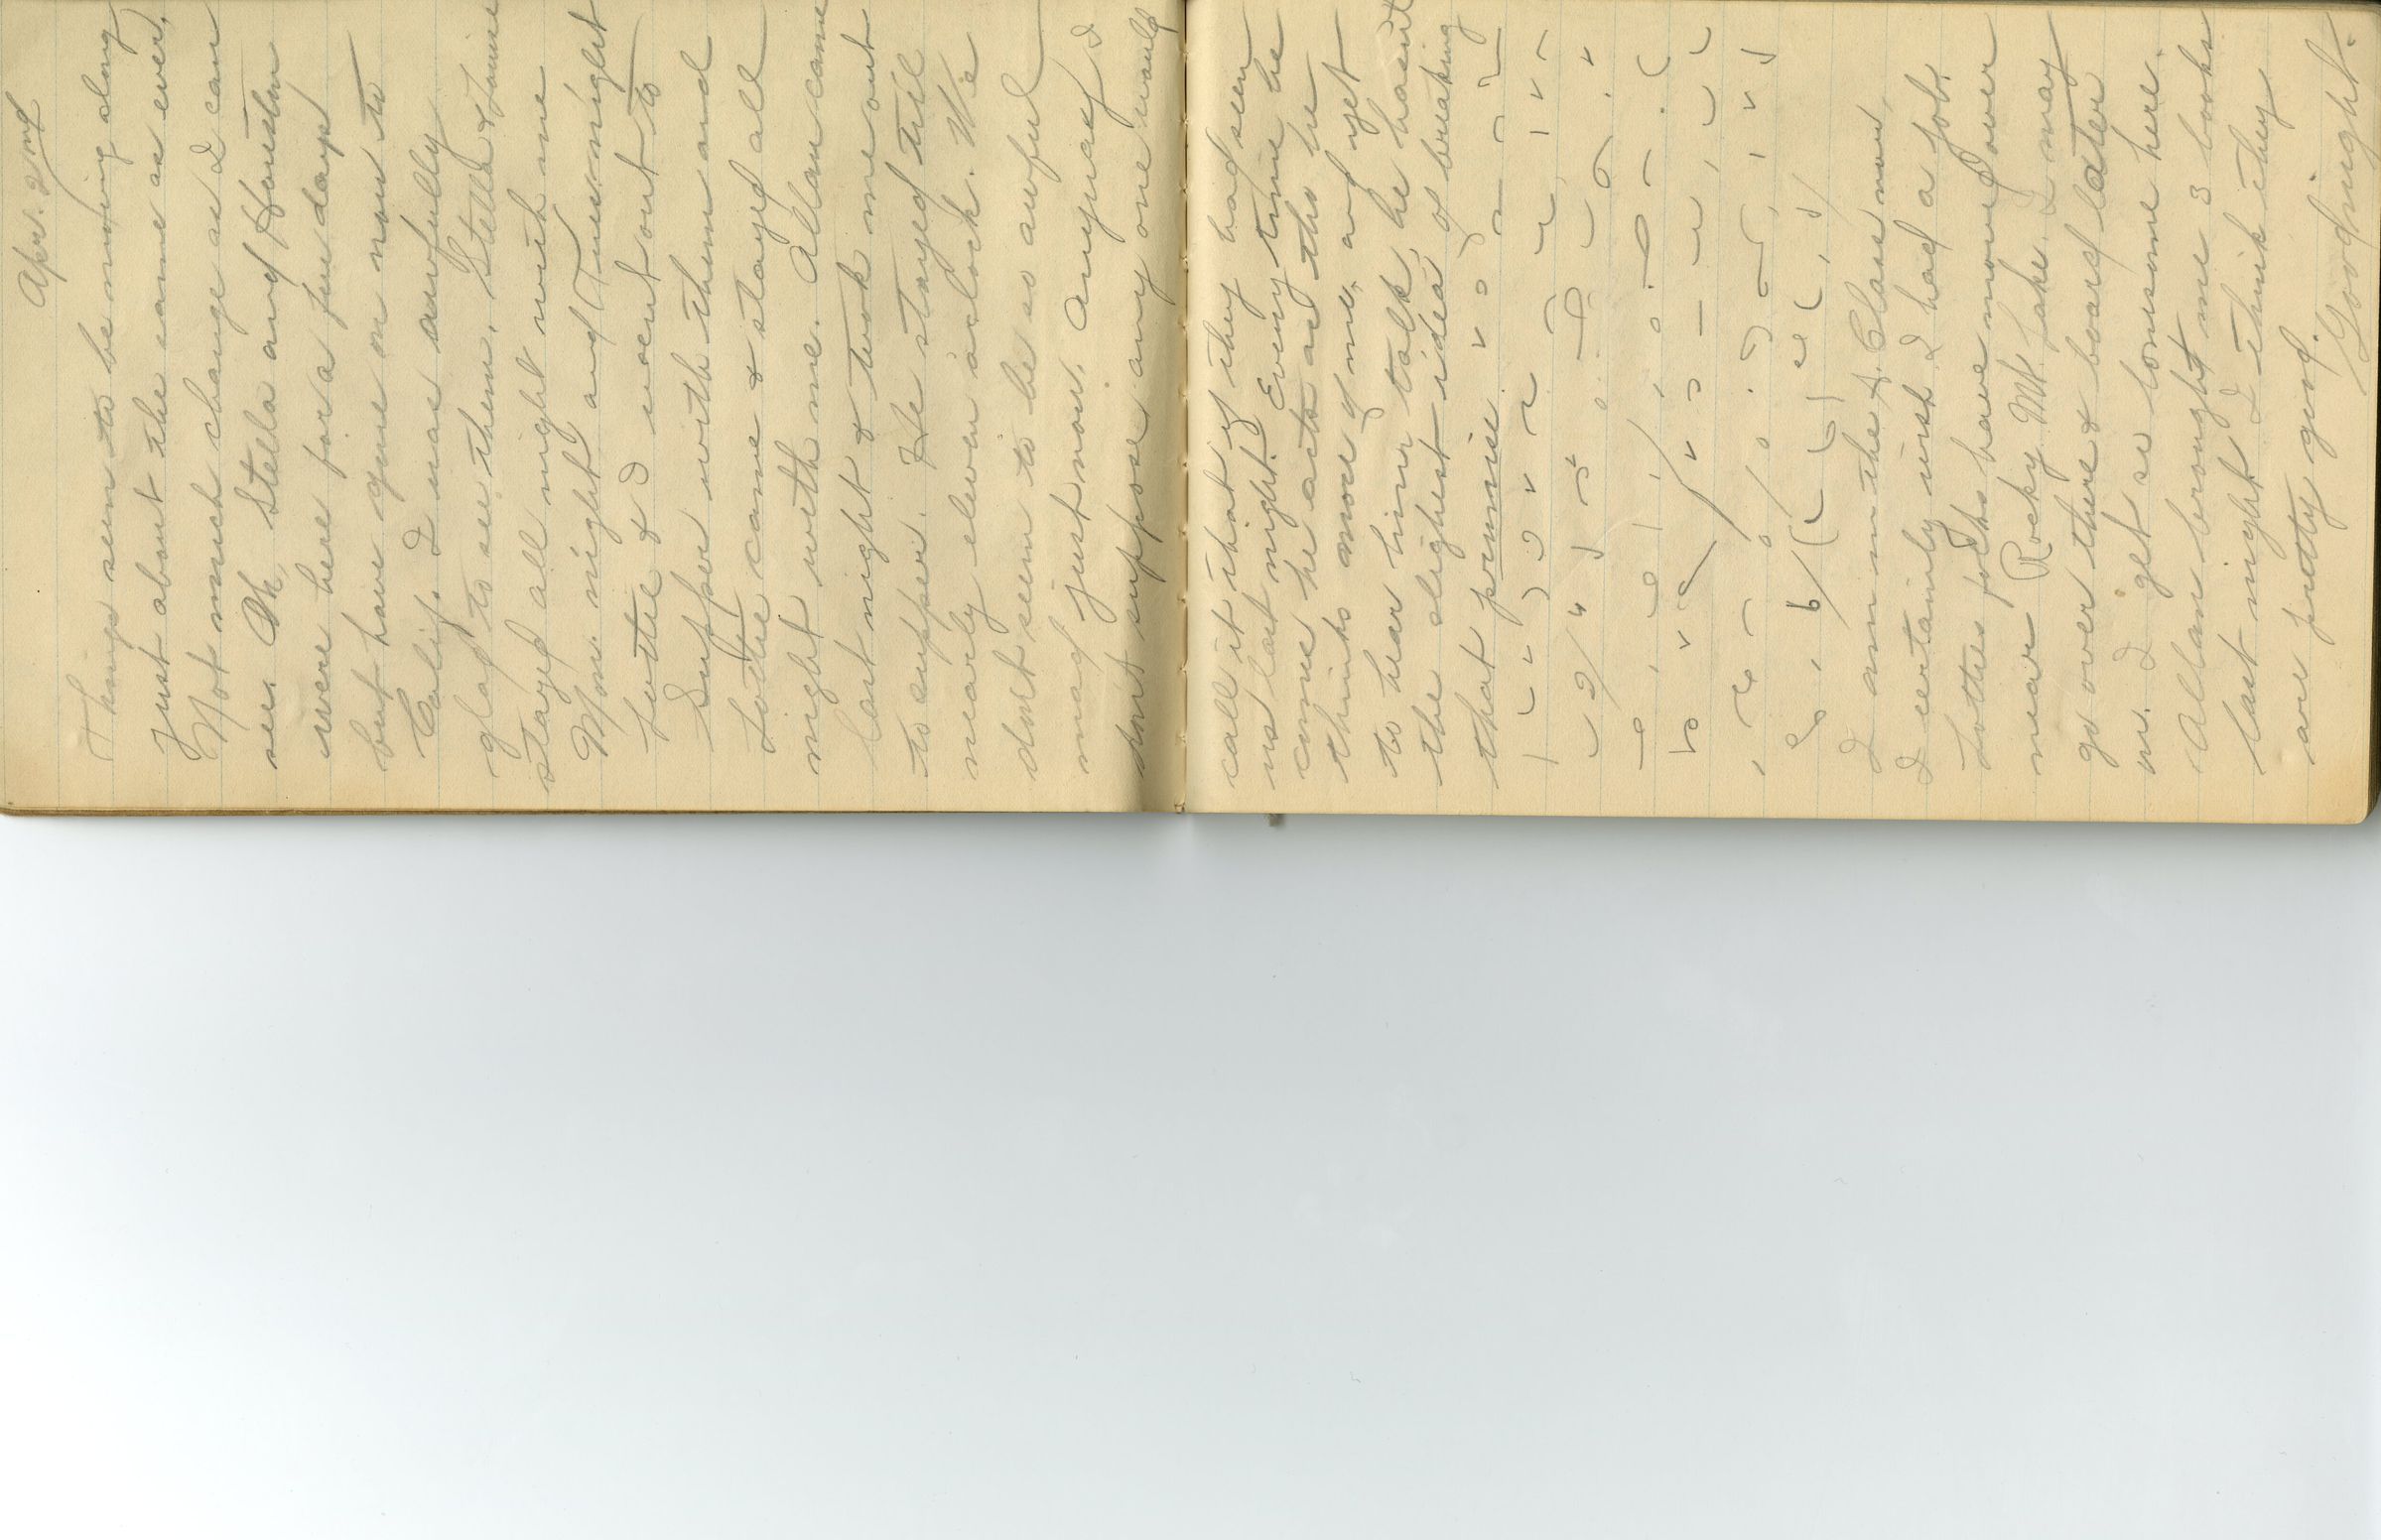 Apr. 2nd
Things seem to be moving along
just about the same as ever,
Not much change as I can
see. Oh, Stella and Houston
were here for a few days
but have gone on now to
Calif. I was awfully
glad to see them. Stella & Louise
stayed all night with me
Mon. night and Tues. night
Lottie & I went out to
Supper with them and
Lottie came & stayed all
night with me. Allan came
last night & took me out
to supper. He stayed till
nearly eleven o'clock. We
don't seem to be so awful
mad just now. Anyway I
don't suppose any one would
call it that if they had seen
us last night. Every time he
comes he acts as tho he
thinks more of me, and yet
to hear him talk, he hasn't
the slightest idea of breaking
that promise.
I am in the A. Class now,
I certainly wish I had a job.
Lotties folks have moved over
near Rocky Mt. Lake. I may
go over there & board later
on. I get so lonesome here.
Allan brought me 3 books
last night I think they
are pretty good.
Goodnight.